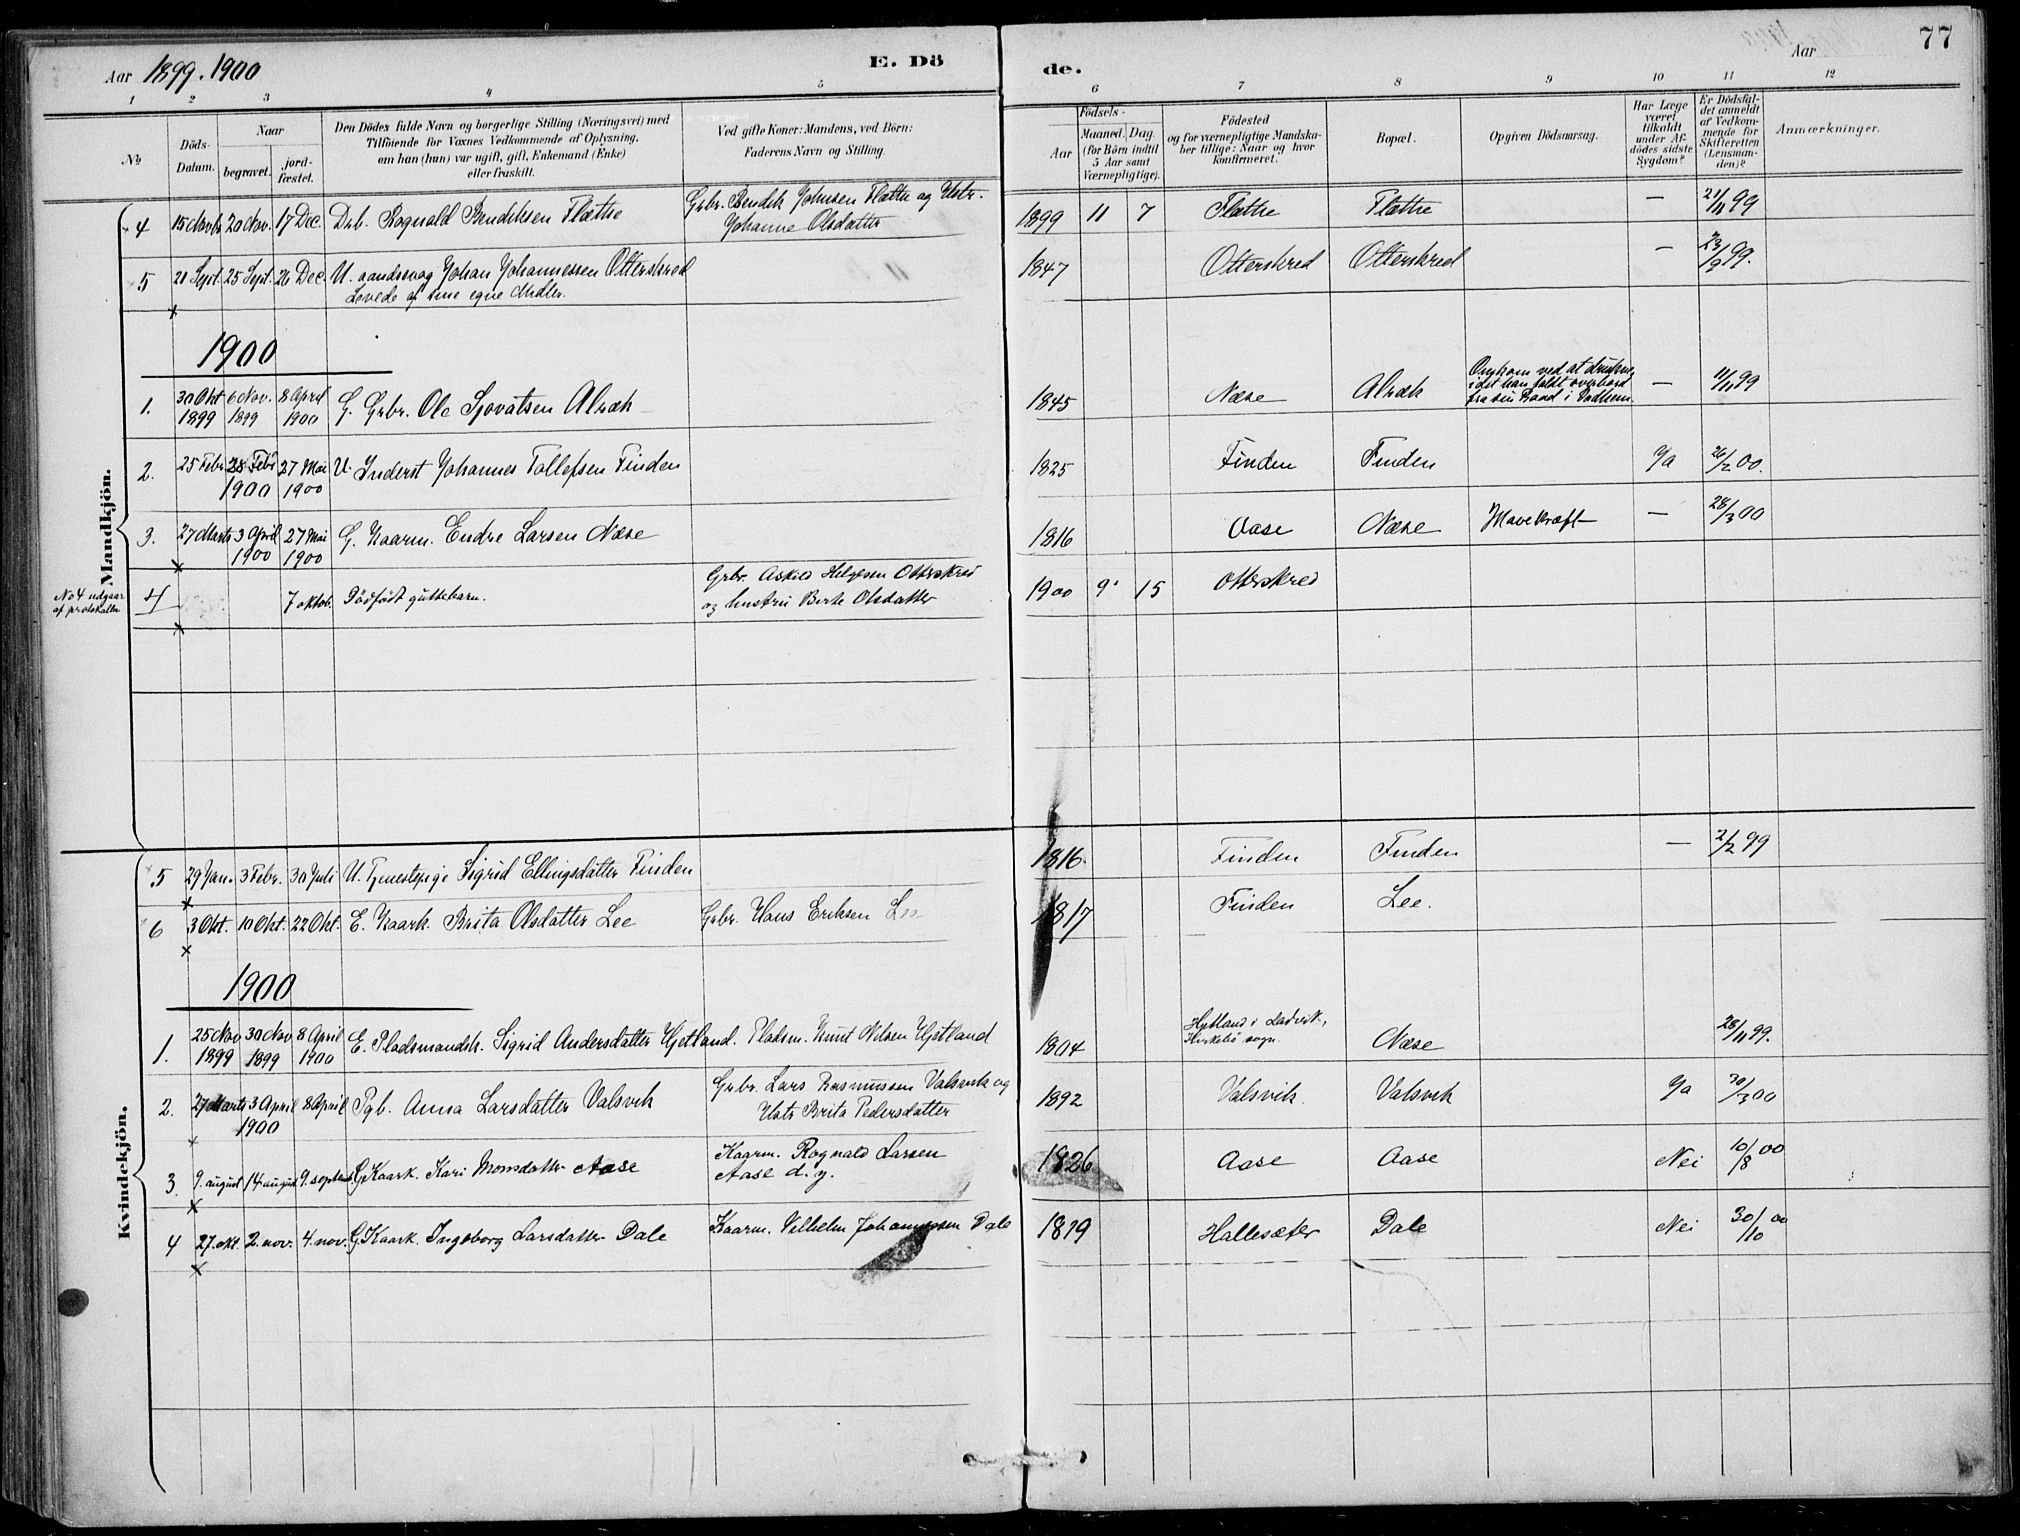 Aar 1899. 1900
E. Dö
de.
Aar
77
1 2 3 4 5 6 7 8 9 10 11 12
No
Döds-
Datum.
Naar
begravet.
jord-
fæstet.
Den Dödes fulde Navn og borgerlige Stilling (Næringsvei) med
Tilföiende for Voxnes Vedkommende af Oplysning,
om han (hun) var ugift, gift, Enkemand (Enke)
eller fraskilt.
Ved gifte Koner: Mandens, ved Börn:
Faderens Navn og Stilling.
Födsels-
Aar
Maaned. Dag.
(for Börn indtil
5 Aar samt
Værnepligtige).
Födested
og for værnepligtige Mandska-
ber tillige: Naar og hvor
konfirmeret.
Bopæl.
Opgiven Dödsaarsag.
Har Læge
været
tilkaldt
under Af-
dödes sidste
Sygdom?
Er Dödsfal-
det anmeldt
af Vedkom-
mende for
Skifteretten
(Lensman-
den)?
Anmærkninger.
Mandkjön.
4 15 Novbr 20 Nov. 17 Dec. Drb. Rognald Bendiksen Flæthe Grbr. Bendik Johnsen Flæthe og Hstr. Johanne Olsdatter 1899 11 7 Flæthe Flæthe — 21/11 99
5 21 Sept. 25 Sept. 26 Dec. U. aandssvag Johan Johannessen Otterskred 1847 Otterskred Otterskred — 23/9 99.
Levede af sine egne Midler.
1900
1. 30 Okt 1899 6 Nov. 1899 8 April 1900 G. Grbr. Ole Sjovatsen Alræk 1845 Næse Alræk Omkom ved at drukne,
idet han faldt overbord
fra sin Baad i Vadheim — 11/11 99
2. 25 Febr 28 Febr 1900 27 Mai 1900 U. Inderst Johannes Tollefsen Finden 1825 Finden Finden Ja 26/2 00.
3. 27 Marts 3 April 1900 27 Mai 1900 G. Kaarm. Endre Larsen Næse 1816 Aase Næse Mavekræft — 28/3 00
No 4 udgaar
af protokollen
4 7 oktob. Dödfödt guttebarn. Grbr. Askild Helgesen Otterskred
og hustru Berte Olsdatter 1900 9 15 Otterskred
Kvindekjön.
5 29 Jan. 3 Febr. 30 Juli U. Tjenestepige Sigrid Ellingsdatter Finden 1816. Finden Finden — 2/2 99
6 3 Okt. 10 Okt. 22 Okt. E. Kaark. Brita Olsdatter Lee Grbr. Hans Eriksen Lee 1817 Finden Lee.
1900
1. 25 Nov 1899 30 Nov 1899 8 April 1900 E. Pladsmandsk. Sigrid Andersdatter Hjetland. Pladsm. Knut Nilsen Hjetland 1804 Hjetland i Ladvik,
Kirkebö sogn. Næse 28/11 99.
2. 27 Marts 3 April 1900 8 April Pgb. Anna Larsdatter Valsvik Grbr. Lars Rasmussen Valsvik og
Hstr Brita Pedersdatter 1892 Valsvik. Valsvik Ja 30/3 00
3. 9. august 14 august 9. septemb. G. Kaark. Kari Monsdatter Aase Kaarm. Rognald Larsen
Aase d. y. 1826 Aase Aase Nei 10/8 00
4 27. okt. 2. nov. 4. nov. G. Kaark. Ingeborg Larsdatter Dale Kaarm. Vilhelm Johannessen Dale 1819 Hallesæter Dale Nei 30/10 00